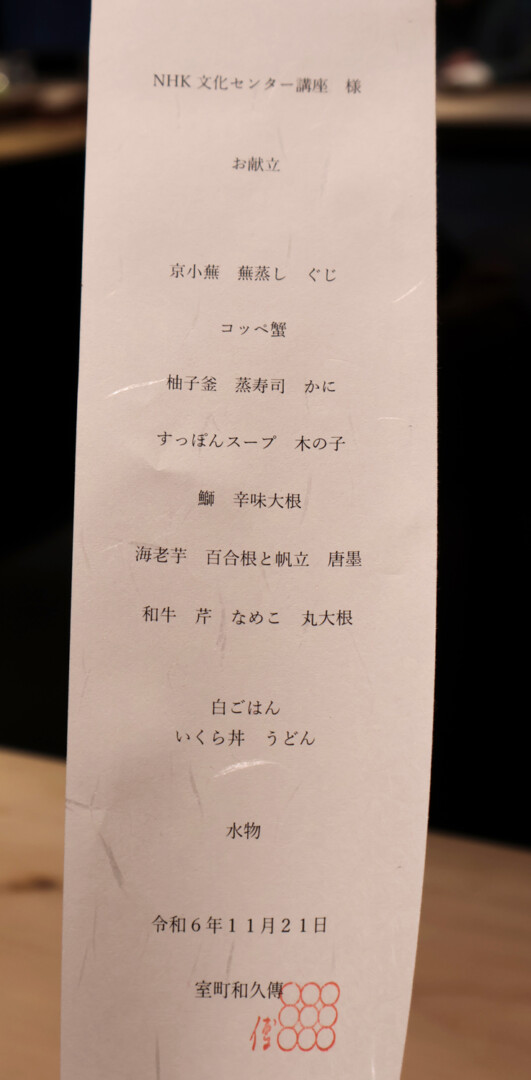 NHK 文化センター講座　様
お献立
京小蕪　蕪蒸し　ぐじ
コッペ蟹
柚子釜　蒸寿司　かに
すっぽんスープ　木の子
鰤　辛味大根
海老芋　百合根と帆立　唐墨
和牛　芹　なめこ　丸大根
白ごはん
いくら丼　うどん
水物
令和６年１１月２１日
室町和久傳
傳